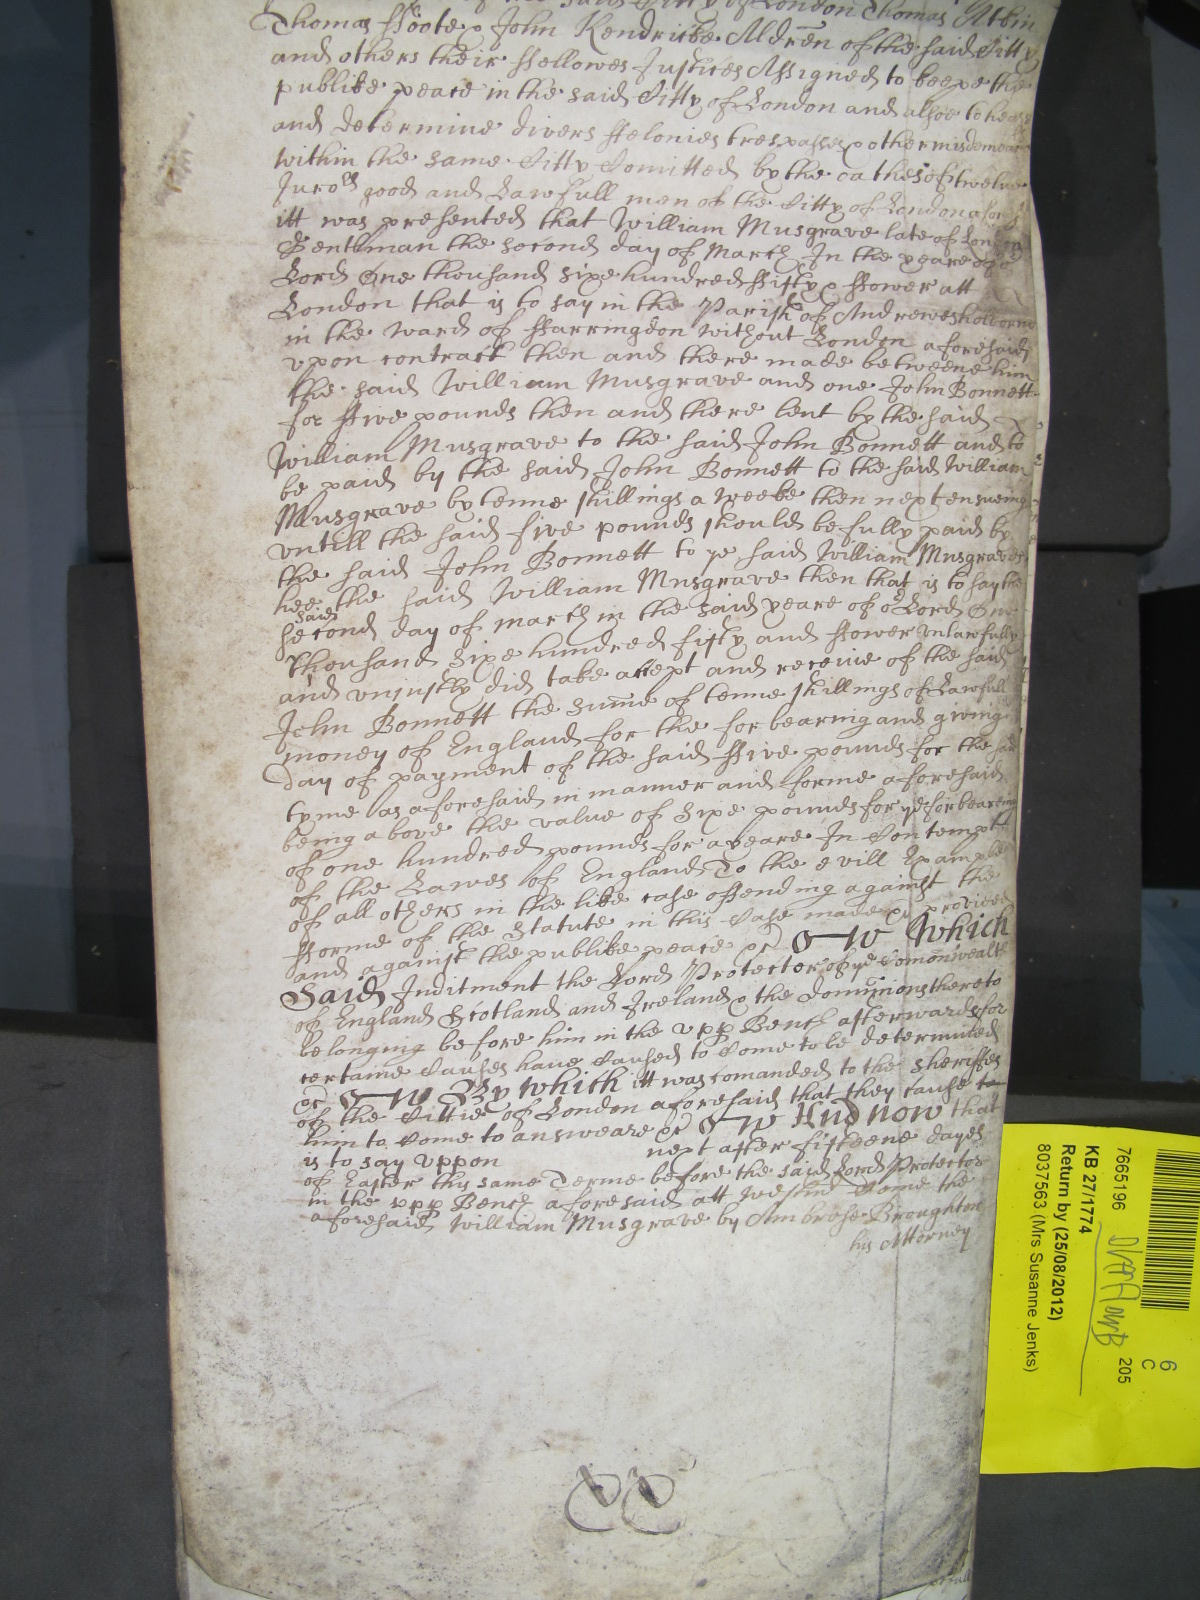 of the said Citty of London Thomas Atkin
Thomas ffoote & John Kendricke Aldren of the said Citty
and others their ffellowes Justices Assigned to keepe the
publike peace in the said Citty of London and alsoe to heare
and determine divers ffelonies trespasses & other misdemeanors
within the same Citty Comitted by the oathes of twelve
Jurors good and Lawfull men of the Citty of London aforesaid
itt was presented that William Musgrave late of London
Gentleman the second day of March In the yeare of or
Lord One thousand sixe hundred ffifty & ffower att
London that is to say in the Parish of Andrewes holborne
in the ward of ffarringdon without London aforesaid
vpon contract then and there made betweene him
the said William Musgrave and one John Bonnett
for ffive pounds then and there lent by the said
William Musgrave to the said John Bonnett and to
be paid by the said John Bonnett to the said William
Musgrave by tenne shillings a weeke then next ensueing
vntill the said five pounds should be fully paid by
the said John Bonnett to ye said William Musgrave
hee the said William Musgrave then that is to say the
said
second day of March in the said yeare of or Lord One
thousand sixe hundred fifty and ffower vnlawfully
and vniustly did take accept and receive of the said
John Bonnett the sume of tenne shillings of Lawfull
money of England for the forbearing and giving
day of payment of the said ffive pounds for the said
tyme as aforesaid in manner and forme aforesaid
being above the value of sixe pounds for ye forbearing
of one hundred pounds for a yeare In Contempt
of the Lawes of England To the evill Example
of all others in the like case offending against the
fforme of the Statute in this Case made & provided
and against the publike peace &c Which
Said Inditment the Lord Protector of ye Comonwealth
of England Scotland and Ireland & the dominions thereto
belonging before him in the vpp Bench afterwards for
certaine Causes have Caused to Come to be determined
&c By which itt was comanded to the Sheriffes
of the Cittie of London aforesaid that they cause to
him to Come to answeare &c And now that
is to say vppon next after fifteene dayes
of Easter this same Terme before the said Lord Protector
in the vpp Bench aforesaid att Westmr Came the
aforesaid William Musgrave by Ambrose Broughton
his Attorney
7665196
KB 27/1774
Return by (25/08/2012)
8037563 (Mrs Susanne Jenks)
6
C
205